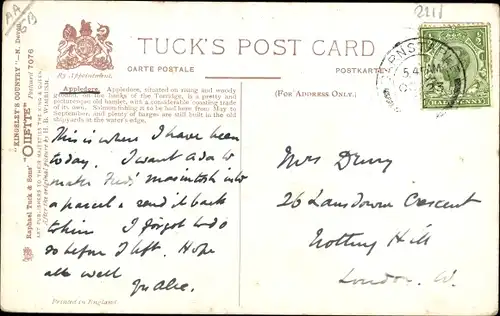 AA
6-B
2211
TUCK'S POST CARD
CARTE POSTALE
POSTKARTE
By Appointment.
(FOR ADDRESS ONLY.)
Raphael Tuck & Sons' "OILETTE" Postcard 7076
"KINGSLEY'S COUNTRY"—N. Devon
ART PUBLISHERS TO THEIR MAJESTIES THE KING & QUEEN.
After the original picture by H. B. WIMBUSH.
Appledore. Appledore, situated on rising and woody
ground, on the banks of the Torridge, is a pretty and
picturesque old hamlet, with a considerable coasting trade
of its own. Salmon fishing is to be had here from May to
September, and plenty of barges are still built in the old
shipyards at the water's edge.
This is where I have been
today. I want Ada to
make Fred's macintosh into
a parcel & send it back
to him I forgot to do
so before I left. Hope
all well
Alice.
Printed in England
HALFPENNY
Mrs
26 Lansdowne Crescent
Notting Hill
London. W.